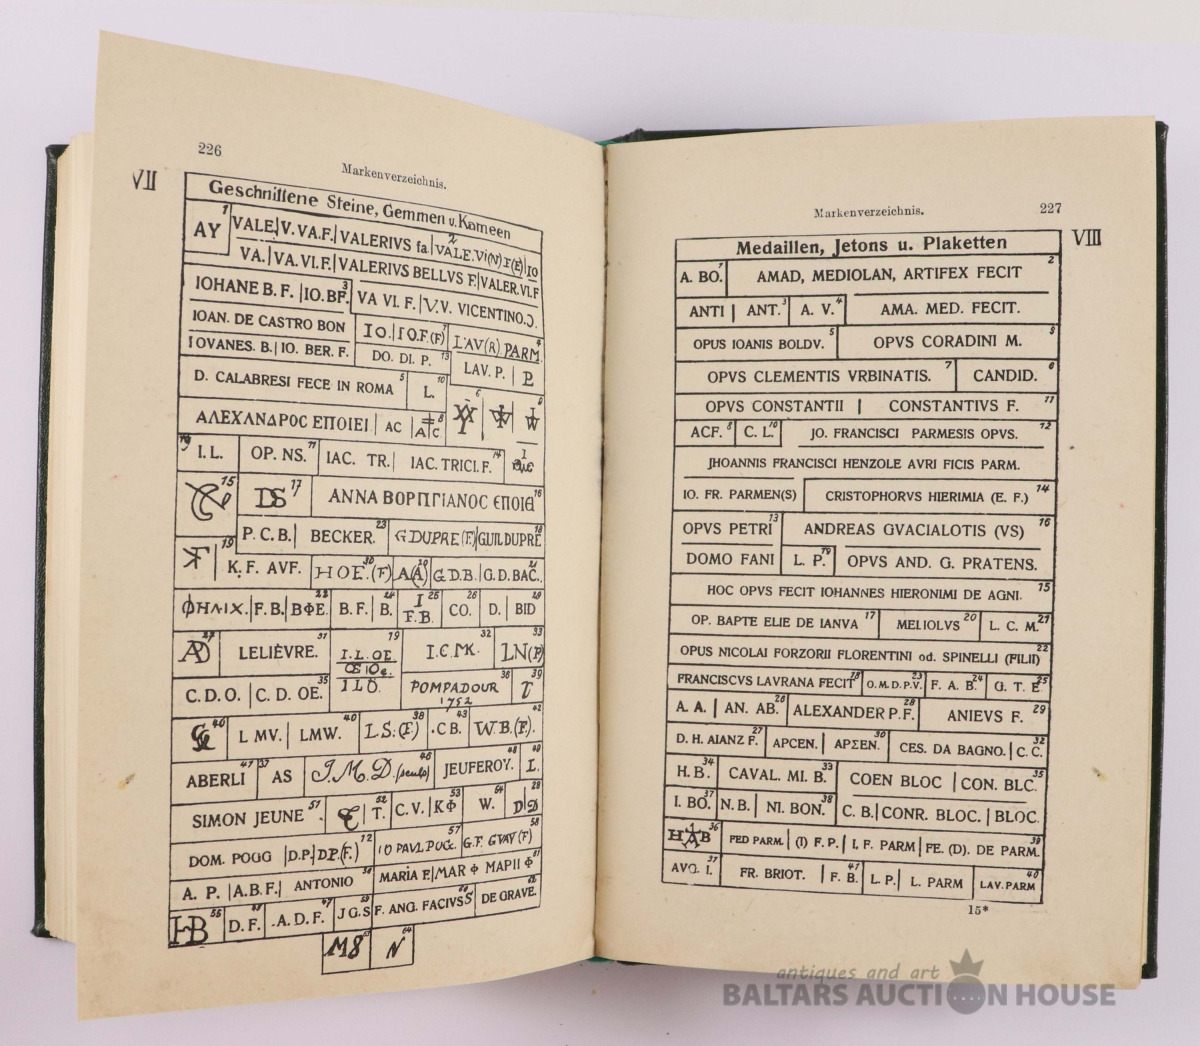 226
Markenverzeichnis.
VII
Geschnittene Steine, Gemmen u. Kameen
AY 1 VALE. V. VA.F. VALERIVS fa. VALE.Vi(N) F(E) 2 IO
VA. VA.VI.F. VALERIVS BELLVS F. VALER.VI.F
IOHANE B. F. IO.BF. 3 VA VI. F. V.V. VICENTINO.
IOAN. DE CASTRO BON IO. I O.F.(F) 7 LAV(R) PARM. 4
IOVANES. B. IO. BER. F. DO. DI. P. 13 LAV. P. P.
D. CALABRESI FECE IN ROMA 5 L. 10
ΑΛΕΧΑΝΔΡΟϹ ЄΠΟΙЄΙ AC AC 8
I.L. OP. NS. 11 IAC. TR. IAC. TRICI. F. 14
15 DS 17 ΑΝΝΑ 16
P. C. B. BECKER. 23 G DUPRE (F.) GUIL DUPRE 18
19 K. F. AVF. HOE. (F) A(A) G.D.B. G.D. BAC. 21
ΦΗΛΙΧ. F. B. ΒΦΕ. 22 B. F. B. 24 I F.B. 25 CO. 26 D. BID 29
AD 27 LELIÈVRE. 31 I.L.OE 19 I.C.MK. 32 LN(F) 33
C. D. O. C. D. OE. 35 I L Ö. POMPADOUR 1752 36 39
40 L MV. LMW. 40 L.S.(F.) 38 .C B. 43 W.B.(F.). 42
ABERLI 47 AS 37 J.M.D. (sculp) 46 JEUFEROY. 48 L. 49
SIMON JEUNE 51 T. 52 C. V. KΦ 53 W. 54 D D 28
DOM. POGG D.P. D.P.(F.) 12 IO PAVL PUG. 57 G.F. GVAY (F) 58
A. P. A.B.F. ANTONIO MARIA F. MAR Φ MAPII Φ 61
HB 56 D. F. .A. D. F. 47 J G.S F. ANG. FACIVSS DE GRAVE. 62
M8 N 64
Markenverzeichnis.
227
VIII
Medaillen, Jetons u. Plaketten
A. BO. 1 AMAD, MEDIOLAN, ARTIFEX FECIT 2
ANTI ANT. 3 A. V. 4 AMA. MED. FECIT.
OPUS IOANIS BOLDV. 5 OPVS CORADINI M. 9
OPVS CLEMENTIS VRBINATIS. 7 CANDID. 6
OPVS CONSTANTII CONSTANTIVS F. 11
ACF. 8 C. L. 10 JO. FRANCISCI PARMESIS OPVS. 12
JHOANNIS FRANCISCI HENZOLE AVRI FICIS PARM.
IO. FR. PARMEN(S) CRISTOPHORVS HIERIMIA (E. F.) 14
OPVS PETRI 13 ANDREAS GVACIALOTIS (VS) 16
DOMO FANI L. P. 19 OPVS AND. G. PRATENS.
HOC OPVS FECIT IOHANNES HIERONIMI DE AGNI. 15
OP. BAPTE ELIE DE IANVA 17 MELIOLVS 20 L. C. M. 21
OPUS NICOLAI FORZORII FLORENTINI od. SPINELLI (FILII) 22
FRANCISCVS LAVRANA FECIT 18 O.M.D.P.V. 23 F. A. B. 24 G. T. E. 25
A. A. AN. AB. 26 ALEXANDER P. F. 28 ANIEVS F. 29
D. H. AIANZ F. 27 APCEN. ΑΡΣΕΝ. 30 CES. DA BAGNO. C. C. 32
H. B. 34 CAVAL. MI. B. 33 COEN BLOC CON. BLC. 35
I. BO. 37 N. B. NI. BON. 38 C. B. CONR. BLOC. BLOC.
HAB 36 FED PARM. (I) F. P. I. F. PARM FE. (D). DE PARM. 39
AVG. I. 31 FR. BRIOT. F. B. 41 L. P. L. PARM LAV. PARM 40
15*
antiques and art
BALTARS AUCTION HOUSE